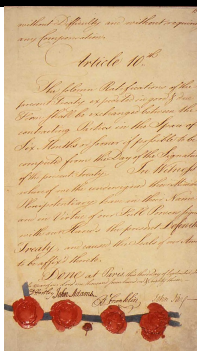 without Difficulty and without requiring
any Compensation.
Article 10th
The solemn Ratifications of the
present Treaty expedited in good & due
Form shall be exchanged between the
contracting Parties in the Space of
Six Months or sooner if possible to be
computed from the Day of the Signature
of the present Treaty. In Witness
whereof we the undersigned their Ministers
Plenipotentiary have in their Name
and in Virtue of our Full Powers
signed with our Hands the present Definitive
Treaty, and caused the Seals of our Arms
to be affixed thereto.
Done at Paris this third day of September
D Hartley John Adams B Franklin John Jay